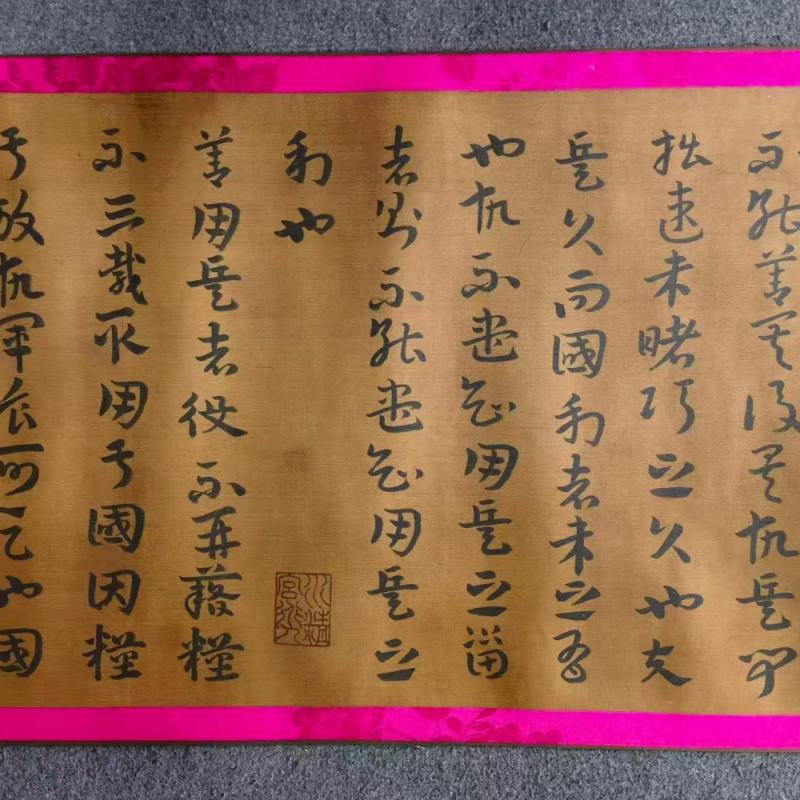 不能善其後矣故兵聞
拙速未睹巧之久也夫
兵久而國利者未之有
也故不盡知用兵之
者則不能盡知用兵之
利也
善用兵者役不再藉糧
不三載取用于國因糧
于敵故軍食可足也國